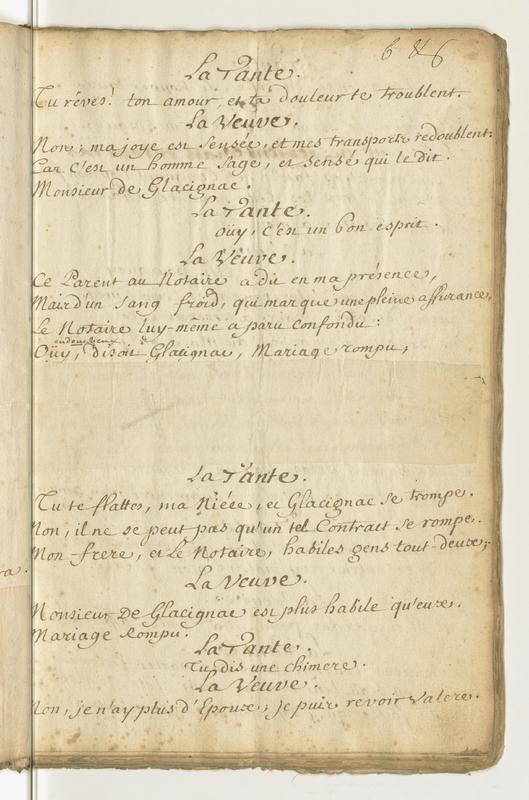 6 & 6
La Tante.
Tu rêves! ton amour, et ta douleur te troublent.
La Veuve.
Non; ma joye est sensée, et mes transports redoublent:
Car c'est un homme sage, et sensé qui le dit.
Monsieur de Glacignac.
La Tante.
oüy, c'est un bon esprit.
La Veuve.
Ce Parent au Notaire a dit en ma présence,
Mais d'un sang froid, qui marque une pleine assurance,
Le Notaire luy-même a paru confondu:
Oüy, disoit Glacignac, Mariage rompu;
La Tante.
Tu te flattes, ma Niéce, et Glacignac se trompe.
Non, il ne se peut pas qu'un tel Contract se rompe.
Mon frere, et Le Notaire, habiles gens tout deux;
La Veuve.
Monsieur De Glacignac est plus habile qu'eux.
Mariage Rompu.
La Tante.
Tu dis une chimere.
La Veuve.
Non, je n'ay plus d'Epoux, je puis revoir Valere.